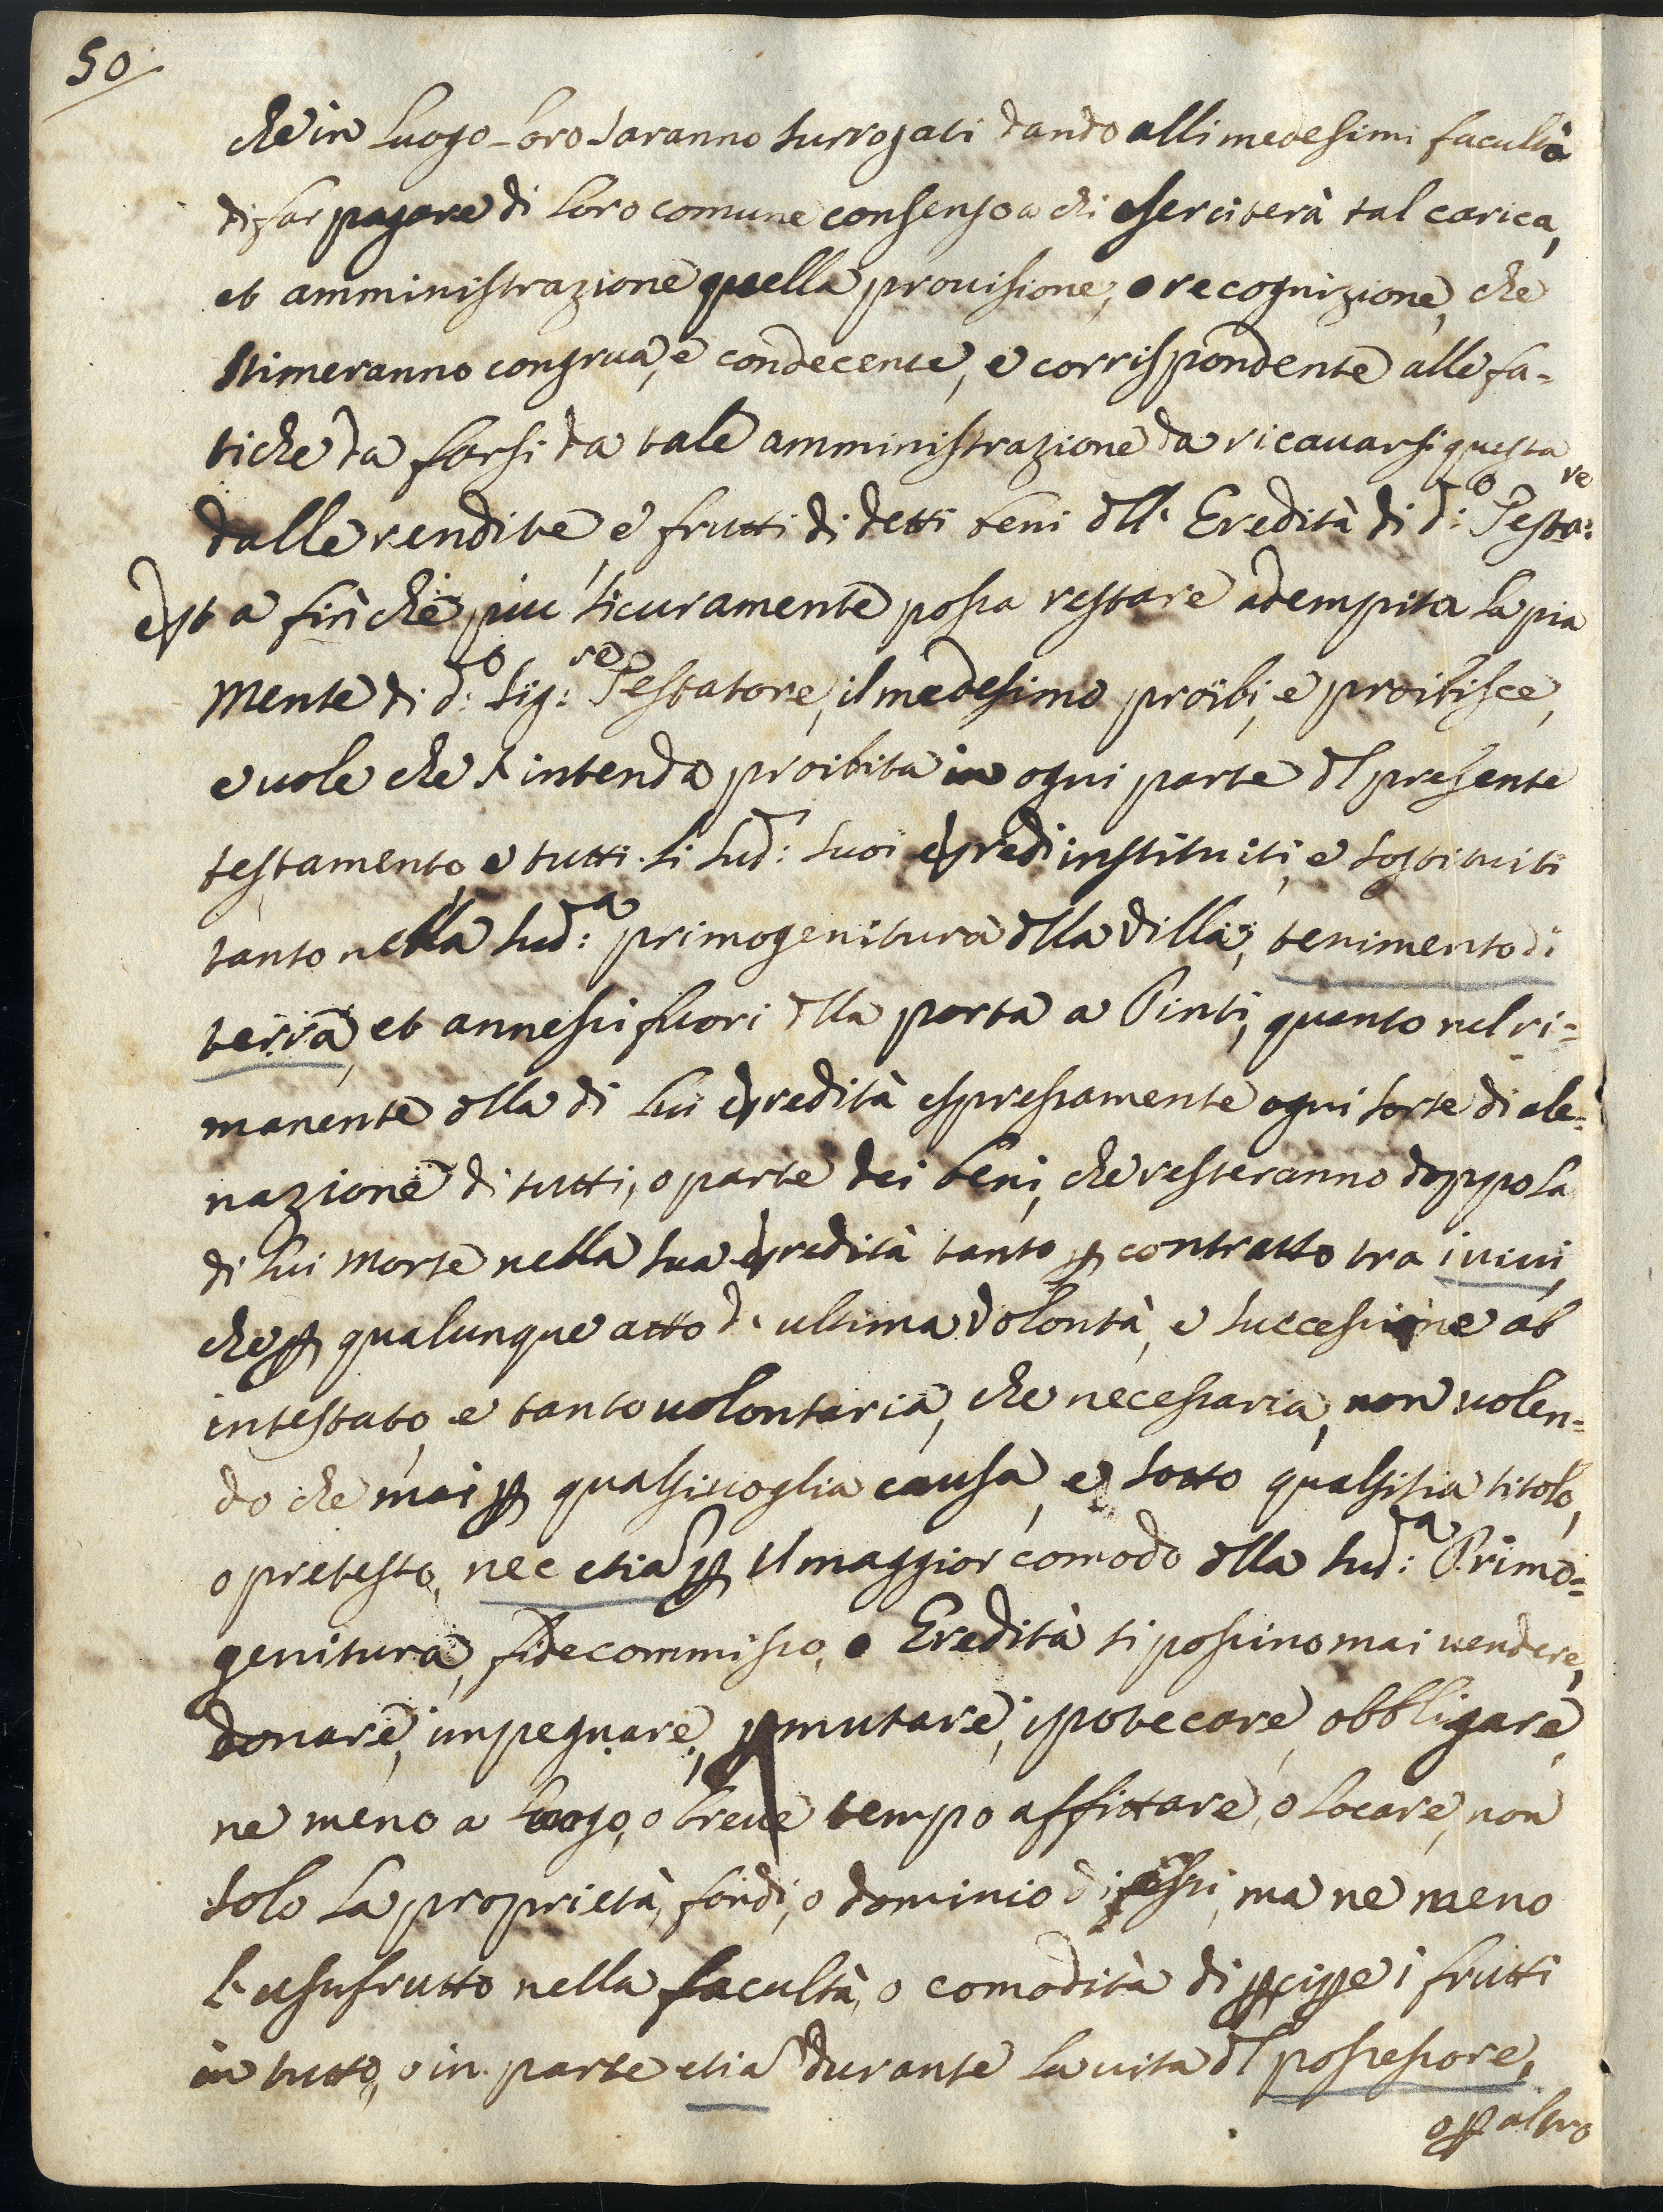 50
che in luogo loro saranno surrogati dando alli medesimi facultà
di far pagare di loro comune consenso a chi eserciterà tal carica,
et amministrazione quella prouisione, o recognizione, che
stimeranno congrua, e condecente, e corrispondente alle fa-
tiche da farsi da tale amministrazione da ricauarsi questa
dalle rendite, e frutti di detti beni dll' Eredità di d:o Testa:re
Et a fin che piu sicuramente possa restare adempita la pia
mente di d:o Sig:re Testatore, il medesimo proibì, e proibisce,
e uole che s'intenda proibita in ogni parte dl presente
testamento, e tutti li sud: suoi Eredi instituiti, e sostituiti
tanto nella sud:a primogenitura dlla Villa, tenimento di
terra, et annessi fuori dlla porta a Pinti, quanto nel ri=
manente dlla di lui Eredità espressamente ogni sorte di ale=
nazione di tutti, o parte dei beni, che resteranno doppo la
di lui morte nella sua Eredità tanto p contratto tra i uiui,
che p qualunque atto d'ultima Volontà, e successione ab
intestato, e tanto uolontaria, che necessaria, non uolen=
do che mai p qualsiuoglia causa, e sotto qualsisia titolo,
o pretesto, nec etia p il maggior comodo dlla sud:a Primo=
genitura, fidecommisso, o Eredità si possino mai uendere,
donare, impegnare, pmutare, ipotecare, obbligare,
ne meno a lungo, o breue tempo affittare, o locare, non
solo la proprietà, fondi, o dominio di essi, ma ne meno
l'usufrutto nella facultà, o comodità di pcipe i frutti
in tutto, o in parte etia durante la uita dl possessore,
o p altro